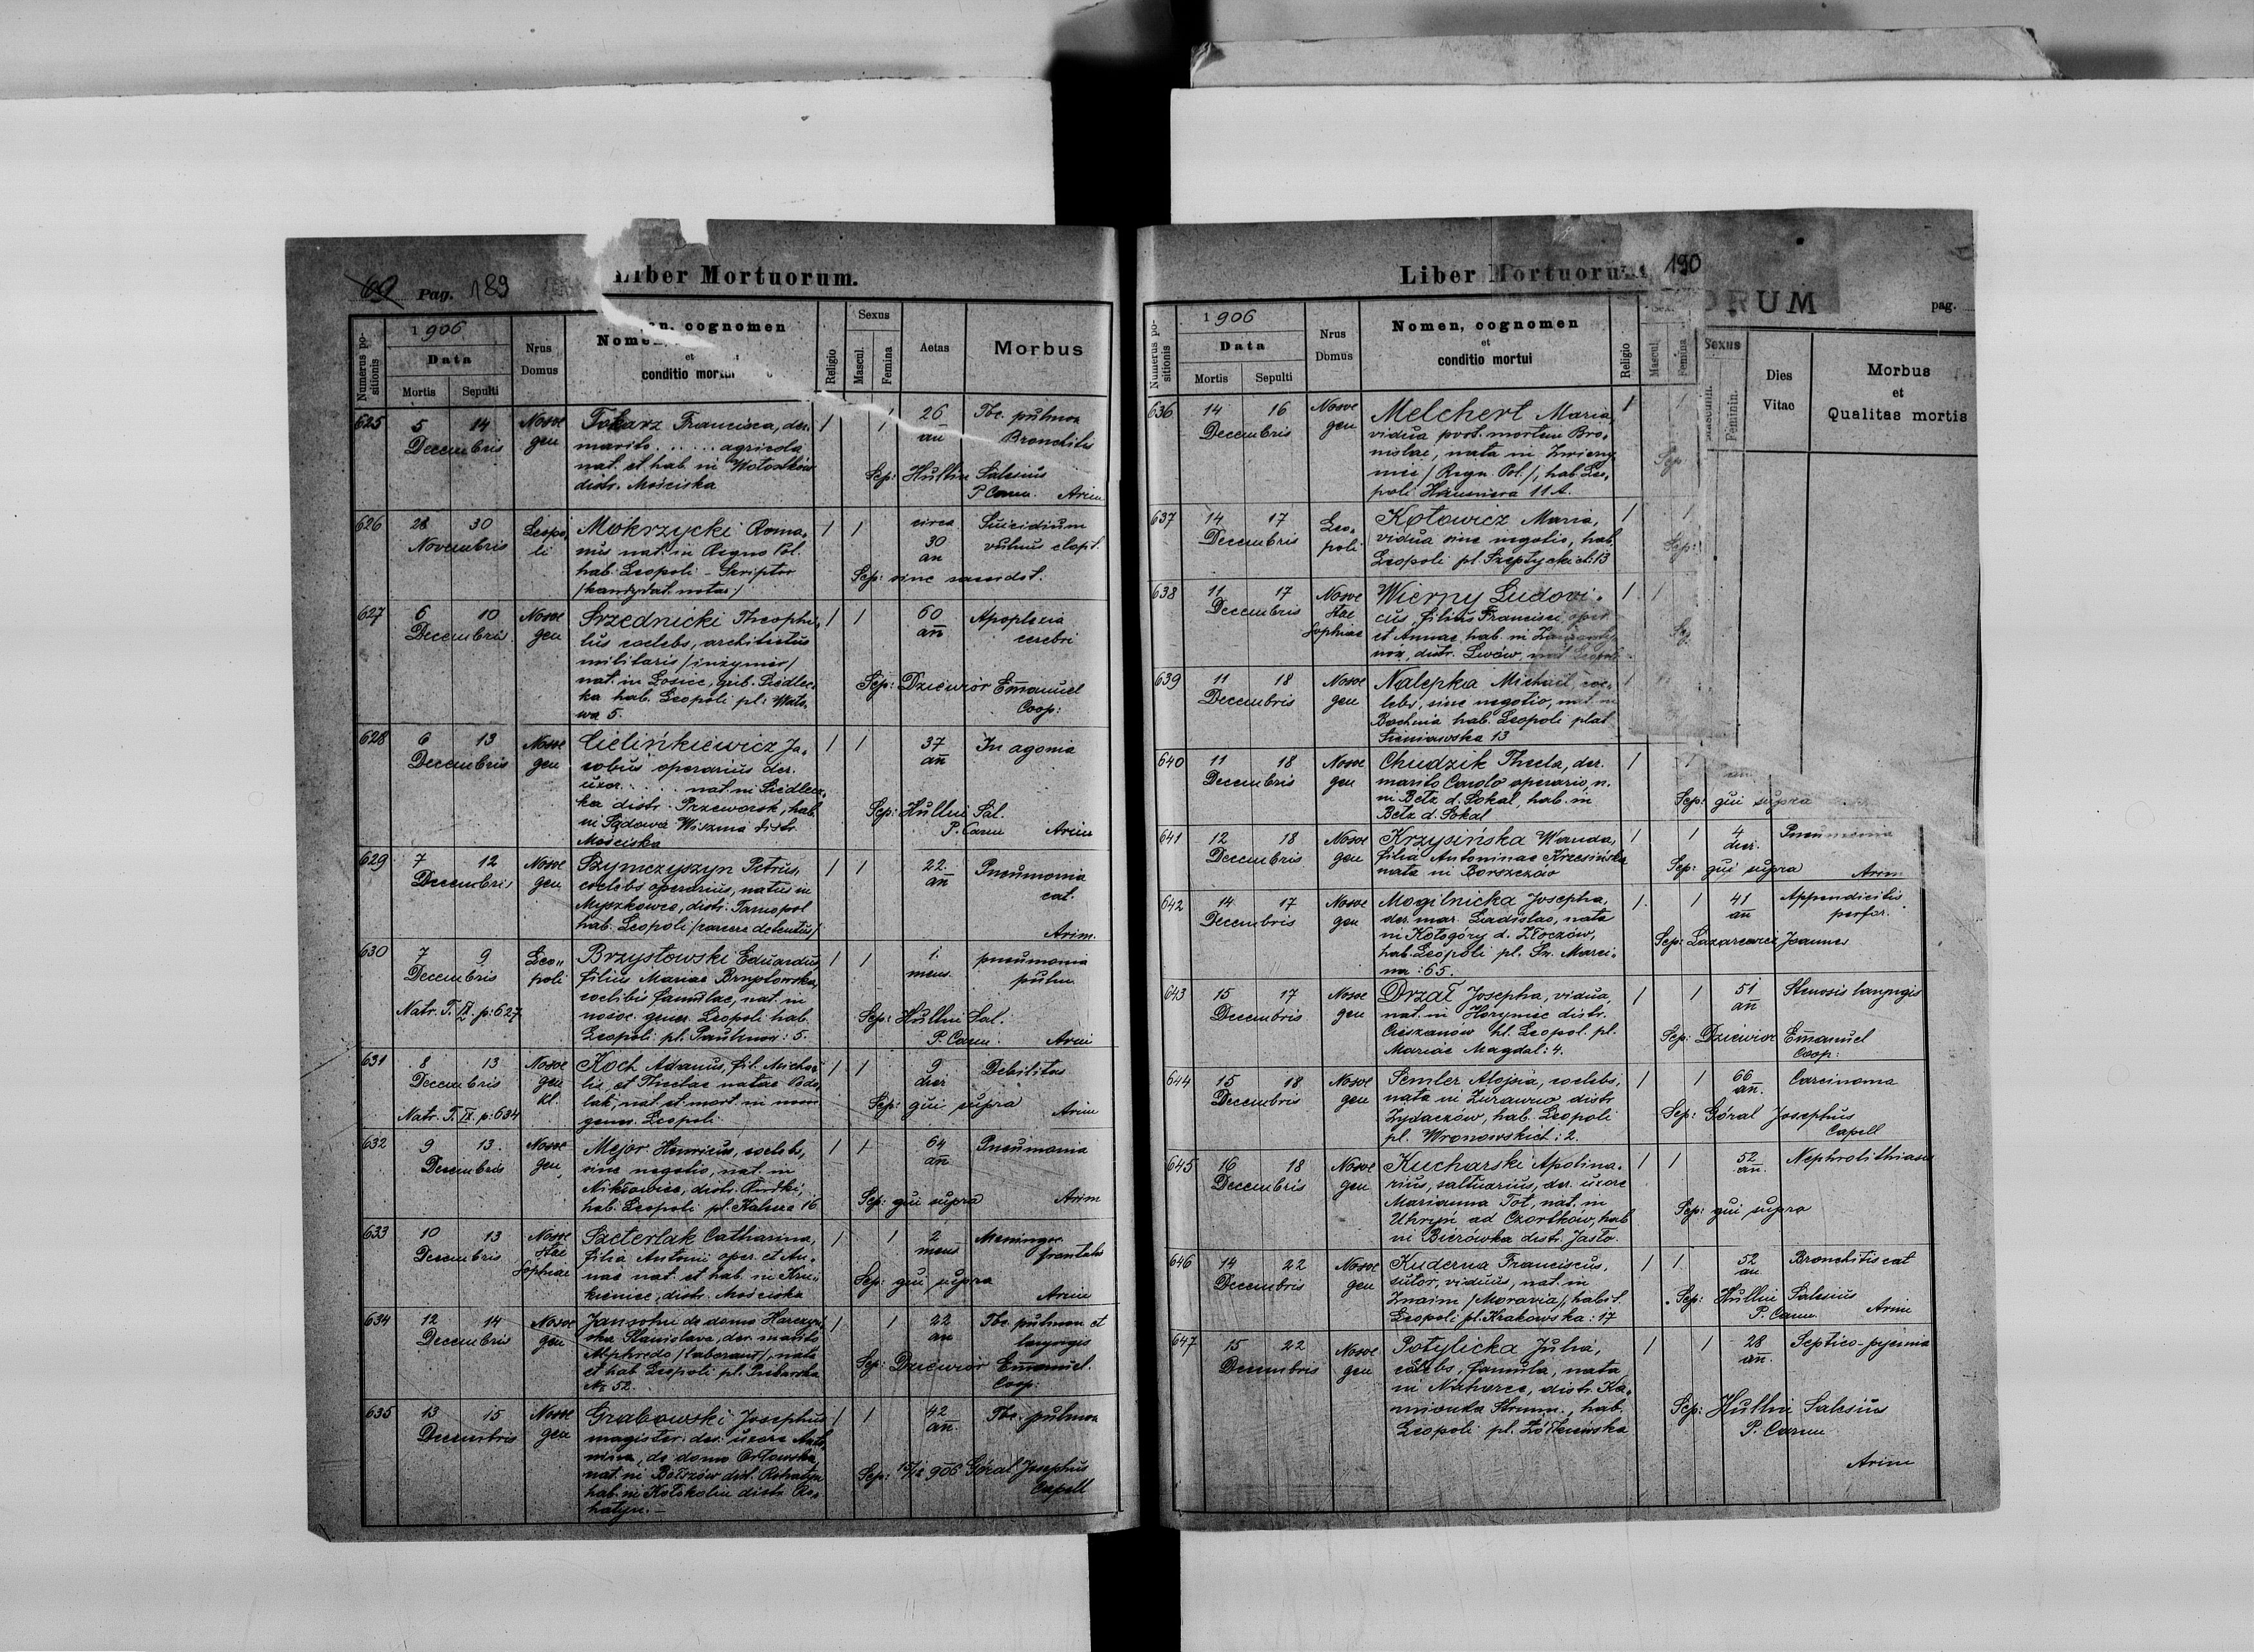 60 Pag. 189
Liber Mortuorum.
Numerus po-
sitionis
1906
Data
Mortis Sepulti
Nrus
Domus
Nomen, cognomen
et
conditio mortui
Religio
Sexus
Mascul.
Femina
Aetas
Morbus
625 5 14 Decembris
Nosoc gen
Tokarz Francisca, der.
marito . . . . . agricola
nat. et hab. in Wołostków
distr. Mościska
1 1 26 an
Tbc. pulmon
Bronchitis
Sep: Hullin Salesius
P. Carm. Arim
626 28 30 Novembris
Leopoli
Mokrzycki Roma-
nus nat. in Regno Pol.
hab. Leopoli - Skriptor
/kandydat. notar/
1 1 circa 30 an
Suicidium
vulnus clopt.
Sep: sine sacerdot.
627 6 10 Decembris
Nosoc gen
Srzednicki Theophi-
lus coelebs, architectus
militaris /inżynier/
nat. in Łosice, gub. Siedlec-
ka hab. Leopoli pl:
wa 5.
1 1 60 an
Apoplexia
cerebri
Sep: Dziewior Emanuel
Coop:
628 6 13 Decembris
Nosoc gen
Cielinkiewicz Ja-
cobus operarius der.
uxor. . . . . nat. in Siedlecz-
ka distr. Przeworsk, hab.
in Sądowa Wisznia distr.
Mościska
1 1 37 an
In agonia
Sep: Hullin Sal.
P. Carm Arim
629 7 12 Decembris
Nosoc gen
Szymczyszyn Petrus,
coelebs operarius, natus in
Myszkowce, distr. Tarnopol
hab. Leopoli /carcere detentus/
1 1 22 an
Pneumonia
cat.
Arim.
630 7 9 Decembris
Leopoli
Natr. T. IX p: 627
Brzystowski Eduardus
filius Mariae Brzystowska,
coelibis famulae, nat. in
nosoc. gener. Leopoli hab.
Leopoli pl. Paulinow: 5.
1 1 1. mens.
pneumonia
pulm
Sep: Hullin Sal.
P. Carm. Arim
631 8 13 Decembris
Nosoc gen kl.
Natr. T. IX p: 634
Koch Adamus, fil. Micha-
lis et Theclae natae Podo-
lak, nat. et mort. in nosoc
gener. Leopoli
1 1 9 dier
Debilitas
Sep: qui supra Arim
632 9 13. Decembris
Nosoc gen
Mejor Henricus, coelebs,
sine negotio, nat. in
Nikłowice, distr. Rudki,
hab. Leopoli pl. Kalicza 16
1 1 64 an
Pneumonia
Sep: qui supra Arim
633 10 13 Decembris
Nosoc Stae Sophiae
Szeterlak Catharina,
filia Antonii oper. et An-
nae nat. et hab. in Kru-
kienice, distr. Mościska
1 1 2 mens
Meningoc.
frontalis
Sep: qui supra
Arim
634 12 14 Decembris
Nosoc gen
Jansohn de domo Harczyń-
ska Stanislava, der. marito
Alphredo /laborant/, nata
et hab. Leopoli pl. Piekarska
No 52.
1 1 22 an
Tbc. pulmon et
laryngis
Sep: Dziewior Emanuel.
Coop:
635 13 15 Decembris
Nosoc gen
Grabowski Josephus
magister der. uxore Anto-
nina, de domo Orłowska,
nat. in Bołszów distr. Rohatyn
hab. in Kołokolin distr. Ro-
hatyn.-
1 1 42 an.
Tbc. pulmon
Sep: 15/12 906 Góral Josephus
Capell
Liber Mortuorum 190
ORUM
pag.
Numerus po-
sitionis
1906
Data
Mortis Sepulti
Nrus
Domus
Nomen, cognomen
et
conditio mortui
Religio
Sex.
Mascul.
Femina
Sexus
Masculin.
Feminin.
Dies
Vitae
Morbus
et
Qualitas mortis
636 14 16 Decembris
Nosoc gen
Melchert Maria,
vidua post. mortem Bro-
nislai, nata in Zwierzy-
niec /Regn. Pol./, hab. Leo-
poli Hausnera 11 A.
1 1
Sep
637 14 17 Decembris
Leopoli
Kotowicz Maria,
vidua sine negotio, hab.
Leopoli pl. Szeptyckich: 13
1 1
Sep:
638 11 17 Decembris
Nosoc Stae Sophiae
Wierny Ludovi-
cus, filius Francisci oper.
et Annae hab. in
distr. Lwów, nat Leopoli
1 1
Sep.
639 11 18 Decembris
Nosoc gen
Nalepka Michael, coe-
lebs, sine negotio, nat. in
Bochnia hab. Leopoli plat
Sieniawska 13
1
640 11 18 Decembris
Nosoc gen
Chudzik Thecla, der.
marito Carolo operario, n.
in Bełz d. Sokal, hab. in
Bełz d. Sokal
1
Sep: qui supra
641 12 18 Decembris
Nosoc gen
Krzysińska Wanda,
filia Antoninae Krzesińska
nata in Borszczów
1 1 4 dier.
Pneumonia
Sep: qui supra Arim
642 14 17 Decembris
Nosoc gen
Mogilnicka Josepha,
der. mar. Ladislao, nata
in Kołogóry d. Złoczów,
hab. Leopoli pl. Św. Marci-
na: 65.
1 1 41 an
Appendicitis
perfor.
Sep: Łazarewicz Joannes
643 15 17 Decembris
Nosoc gen
Drzał Josepha, vidua,
nat. in Horyniec distr.
Cieszanów hl. Leopol. pl.
Mariae Magdal: 4.
1 1 51 an
Stenosis laryngis
Sep: Dziewior Emanuel
Coop:
644 15 18 Decembris
Nosoc gen
Semler Alojsia, coelebs,
nata in Żurawno distr
Żydaczów, hab. Leopoli
pl. Wronowskich: 2.
1 1 66 an.
Carcinoma
Sep: Góral Josephus
Capell
645 16 18 Decembris
Nosoc gen
Kucharski Apolina-
rius, saltuarius, der. uxore
Marianna Tot, nat. in
Uhryń ad Czortków, hab
in Bierówka distr. Jasło.
1 1 52 an.
Nephrolithiasis
Sep: qui supra
646 14 22 Decembris
Nosoc gen
Kuderna Franciscus,
sutor, viduus, nat. in
Znaim /Moravia/, habit.
Leopoli pl. Krakowska: 17
1 1 52 an
Bronchitis cat
Sep: Hullin Salesius
P. Carm Arim
647 15 22 Decembris
Nosoc gen
Potylicka Julia,
coelebs, famula, nata
in Nahorce, distr. Ka-
mionka Strum., hab.
Leopoli pl. Żółkiewska
1 1 28 an.
Septico-pyemia
Sep: Hullin Salesius
P. Carm
Arim